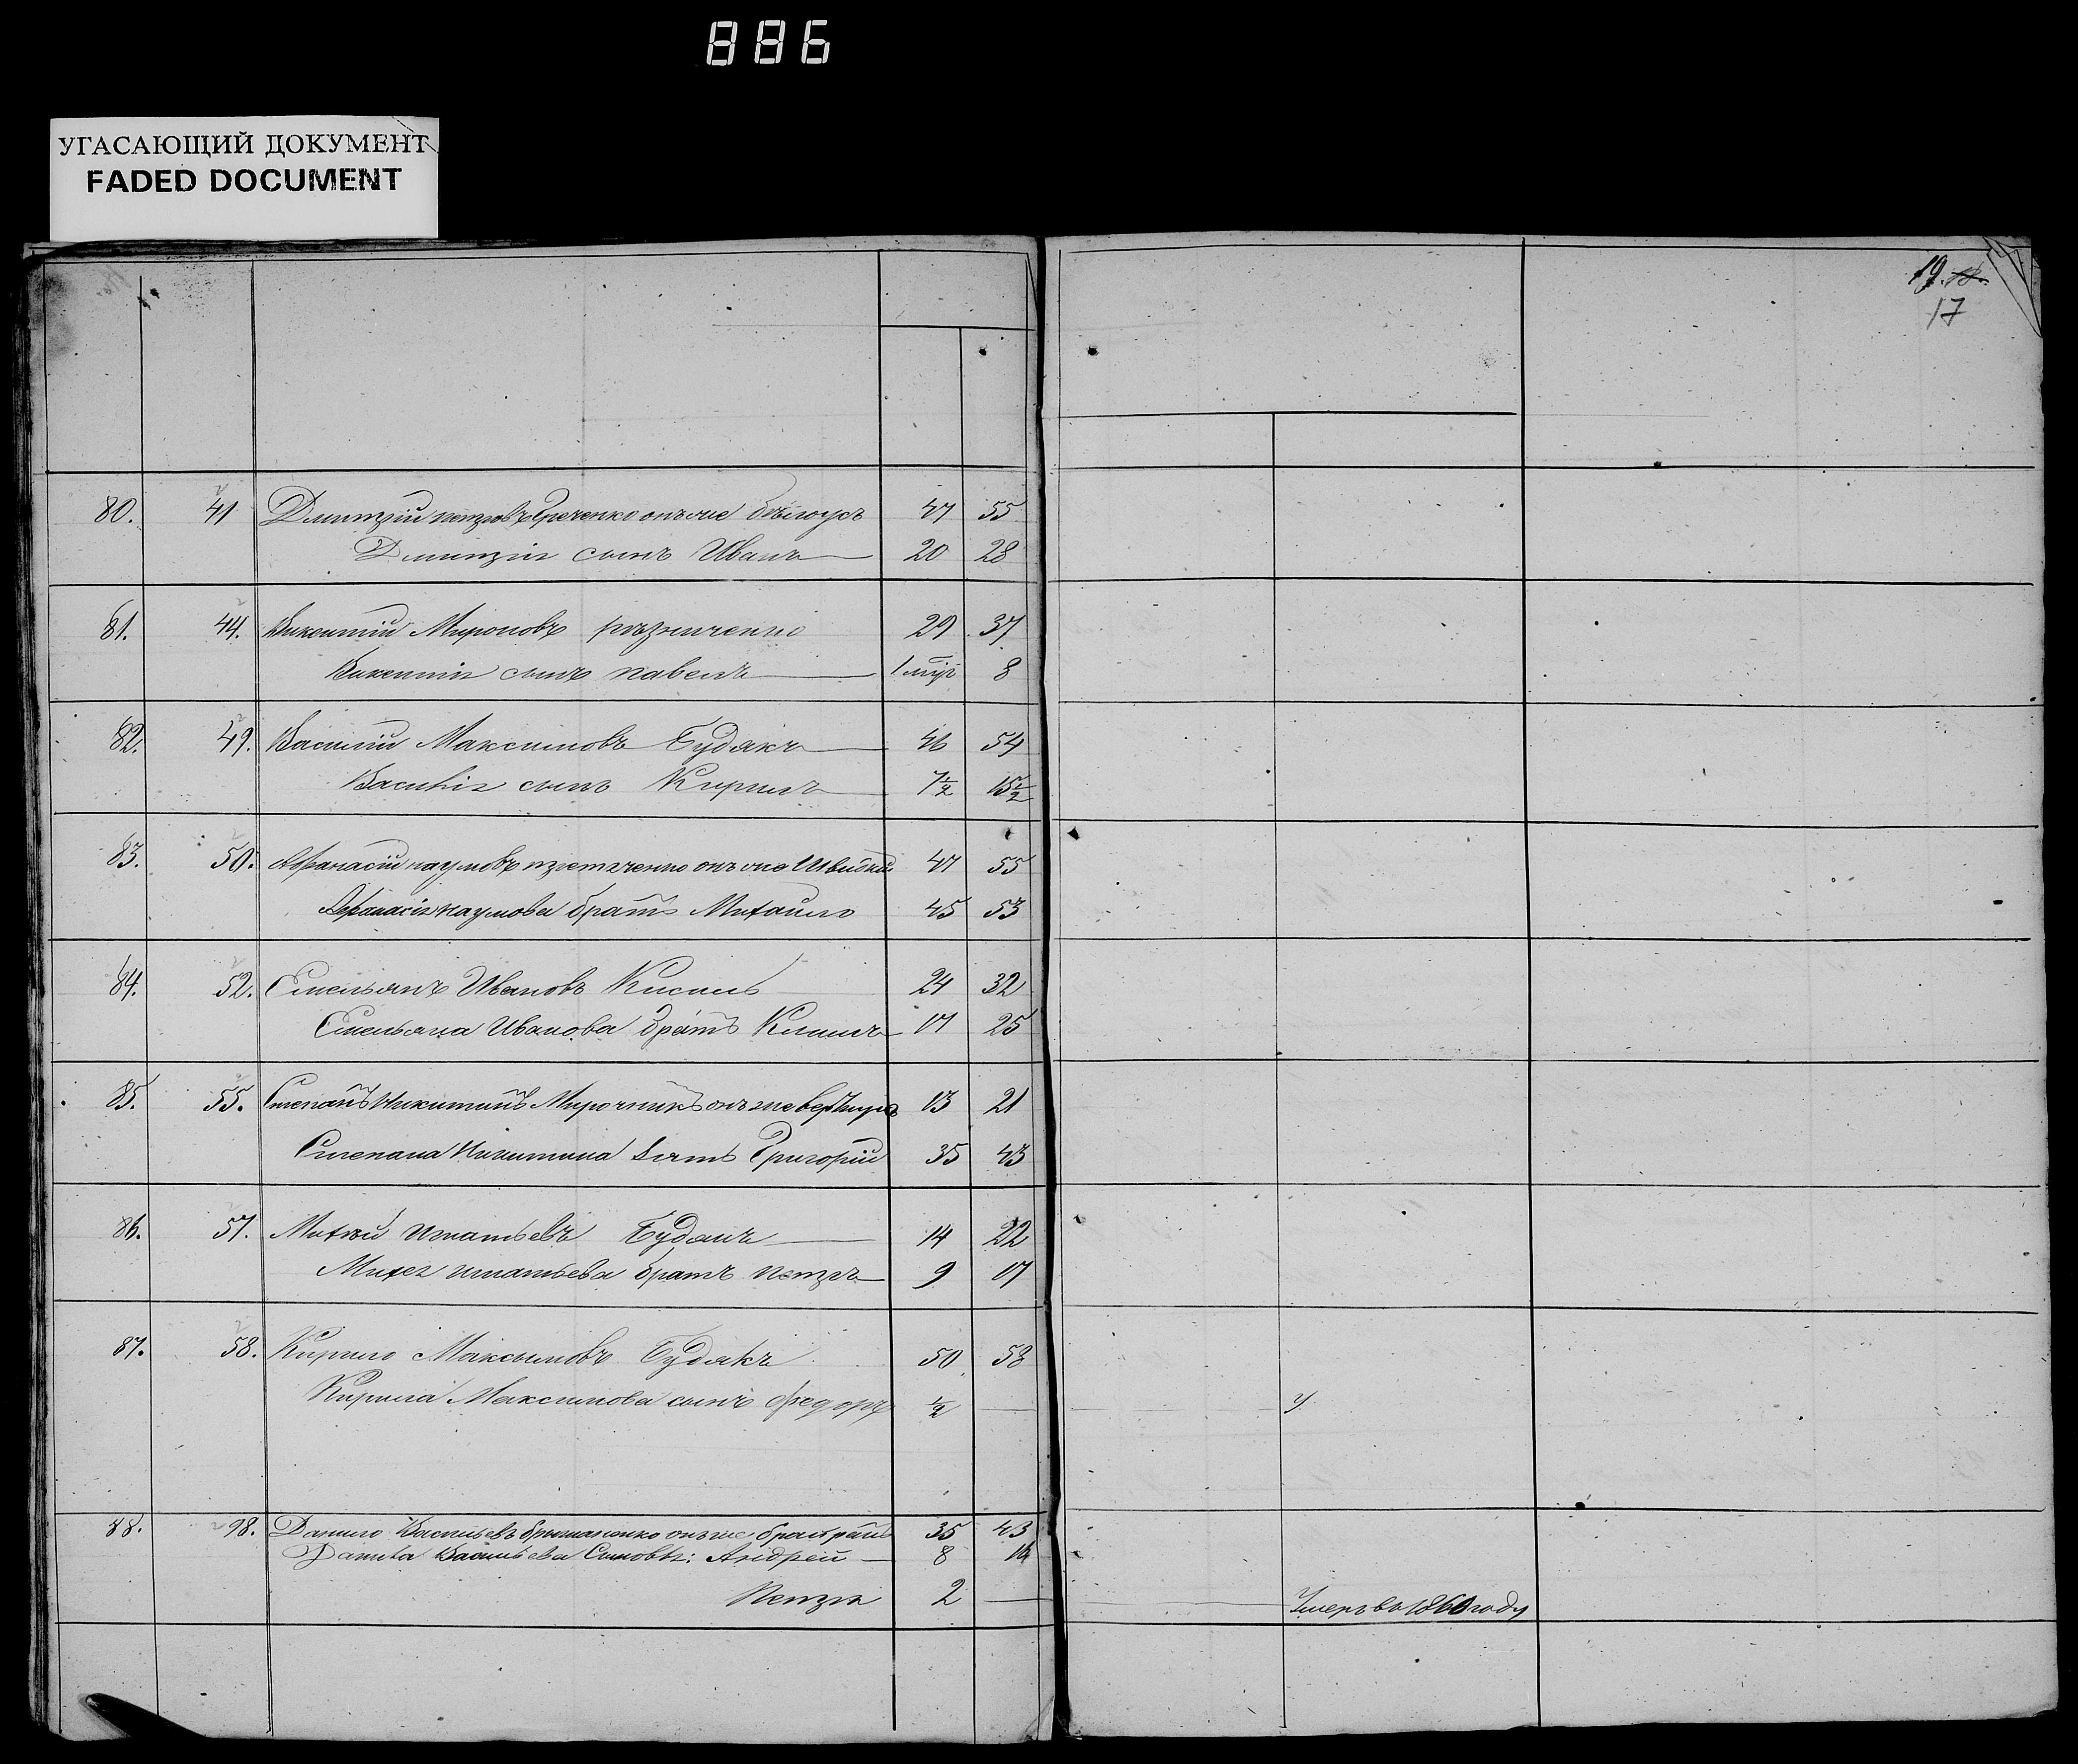 886
УГАСАЮЩИЙ ДОКУМЕНТ
FADED DOCUMENT
19. 18.
17
80. 41 Дмитрій Петровъ Греченко онъ же бѣлоусъ 47 55
Дмитрія сынъ Иванъ 20 28
81. 44. Викентій Мироновъ 29 37
Викентія сынъ Павелъ 1 8
82. 49. Василій Максимовъ Будякъ 46 54
Василія сынъ Кирилъ 7½ 15½
83. 50. Афанасій Наумовъ онъ же Швидкій 47 55
Афанасія Наумова братъ Михайло 45 53
84. 52. Емельянъ Ивановъ Кисиль 24 32
Емельяна Иванова братъ Климъ 17 25
85. 55. Степанъ Никитинъ Мирочникъ онъ же 13 21
Степана Никитина Григорій 35 43
86. 57. Михѣй Игнатьевъ Будякъ 14 22
Михея Игнатьева братъ Петръ 9 17
87. 58. Кирило Максымовъ Будякъ 50 58
Кирила Максимова сынъ Федоръ ½ — У
88. 98. Данило Васильевъ онъ же 35 43
Данила Васильева Сыновья: Андрей 8 16
Петръ 2 — Умеръ въ 1860 году